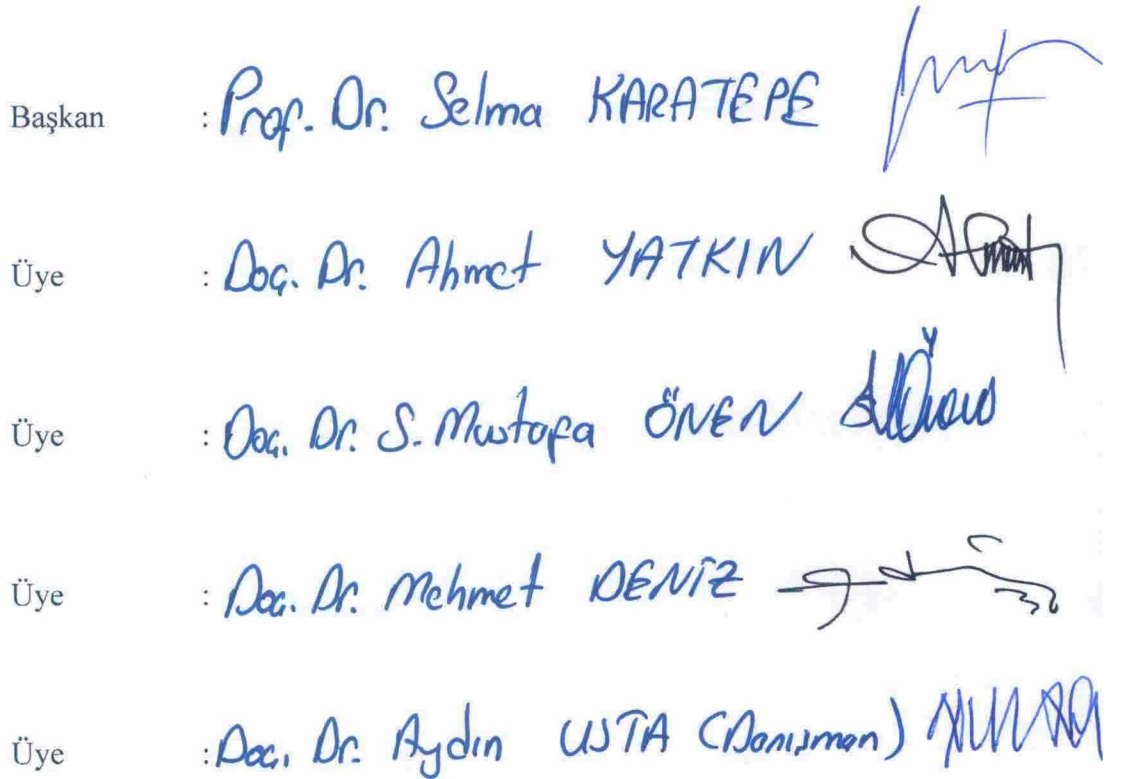 Başkan : Prof. Dr. Selma KARATEPE
Üye : Doç. Dr. Ahmet YATKIN
Üye : Doç. Dr. S. Mustafa ÖNEN
Üye : Doç. Dr. Mehmet DENİZ
Üye : Doç. Dr. Aydın USTA (Danışman)